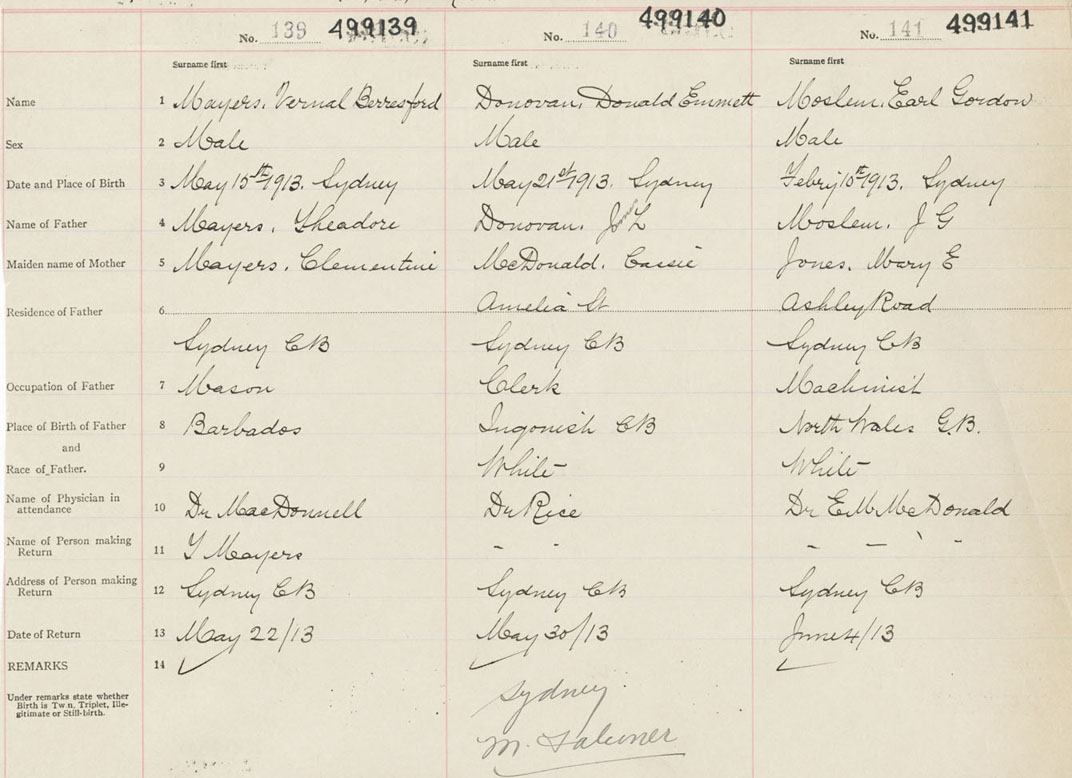 No. 139 499139 No. 140 499140 No. 141 499141
Surname first Surname first Surname first
Name 1 Mayers, Vernal Berresford Donovan, Donald Emmett Moslem, Earl Gordon
Sex 2 Male Male Male
Date and Place of Birth 3 May 15th 1913. Sydney May 21st 1913. Sydney Febry 10th 1913. Sydney
Name of Father 4 Mayers, Theadore Donovan, L Moslem, J G
Maiden name of Mother 5 Mayers, Clementini McDonald, Cassie Jones, Mary E
Amelia St Ashley Road
Residence of Father 6
Sydney CB Sydney CB Sydney CB
Occupation of Father 7 Mason Clerk Machinist
Place of Birth of Father 8 Barbados Ingonish CB North Wales G.B.
and
Race of Father. 9 White White
Name of Physician in attendance 10 Dr MacDonnell Dr Rice Dr E M McDonald
Name of Person making Return 11 T Mayers - - - - -
Address of Person making Return 12 Sydney CB Sydney CB Sydney CB
Date of Return 13 May 22/13 May 30/13 June 4/13
REMARKS 14
Under remarks state whether
Birth is Twin, Triplet, Ille-
gitimate or Still-birth.
Sydney
M.